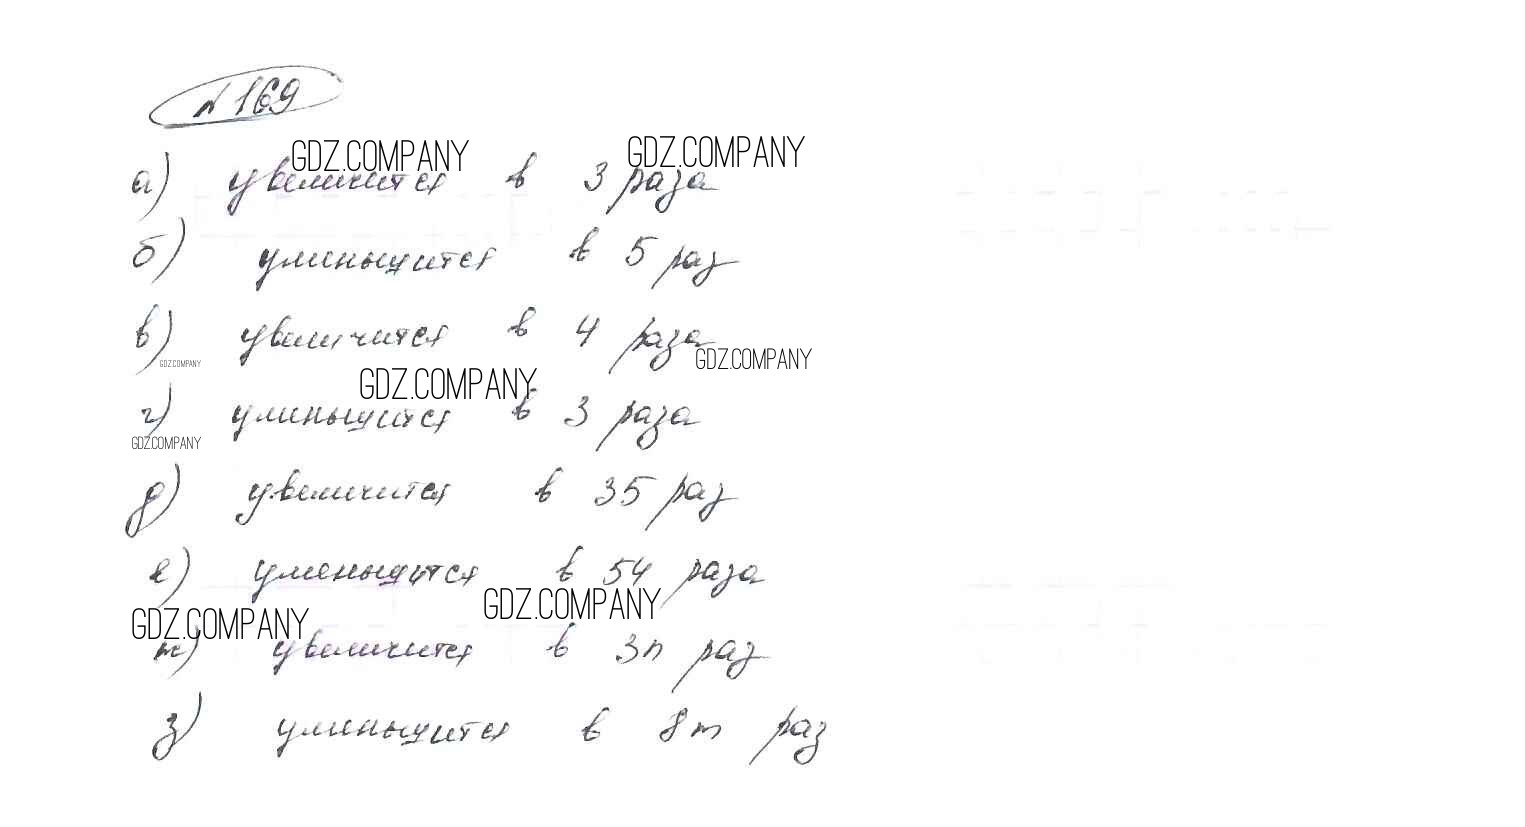 № 169
GDZ.COMPANY GDZ.COMPANY
а) увеличится в 3 раза
б) уменьшится в 5 раз
в) увеличится в 4 раза
GDZ.COMPANY GDZ.COMPANY
GDZ.COMPANY
г) уменьшится в 3 раза
GDZ.COMPANY
д) увеличится в 35 раз
е) уменьшится в 54 раза
GDZ.COMPANY GDZ.COMPANY
ж) увеличится в 3n раз
з) уменьшится в 8m раз